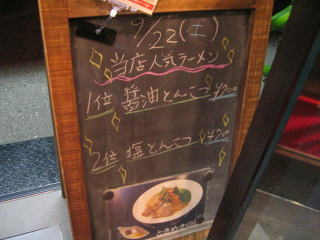 9/22(土)
当店人気ラーメン
1位 醤油とんこつ ¥700
2位 塩とんこつ ¥700